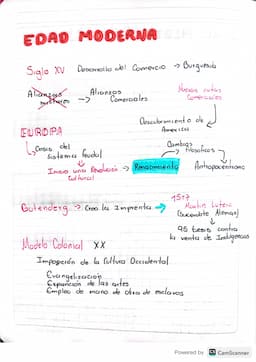 EDAD MODERNA
Siglo XV Desarrollo del Comercio → Burguesía
Alianzas militares → Alianzas Comerciales
Nuevas rutas Comerciales
Descubrimiento de America
EUROPA
Crisis del Sistema feudal
Cambios filosoficos
Inicio una Revolución Cultural → Renacimiento
Antropocentrismo
Gutenderg → Creo la Imprenta →
1517
Martin Lutero
(Sacerdote Aleman)
95 tesis contra
la venta de Indulgencias
Modelo Colonial XX
Imposición de la Cultura Occidental
Evangelización
Expansión de las artes
Empleo de mano de obra de esclavos
Powered by CS CamScanner